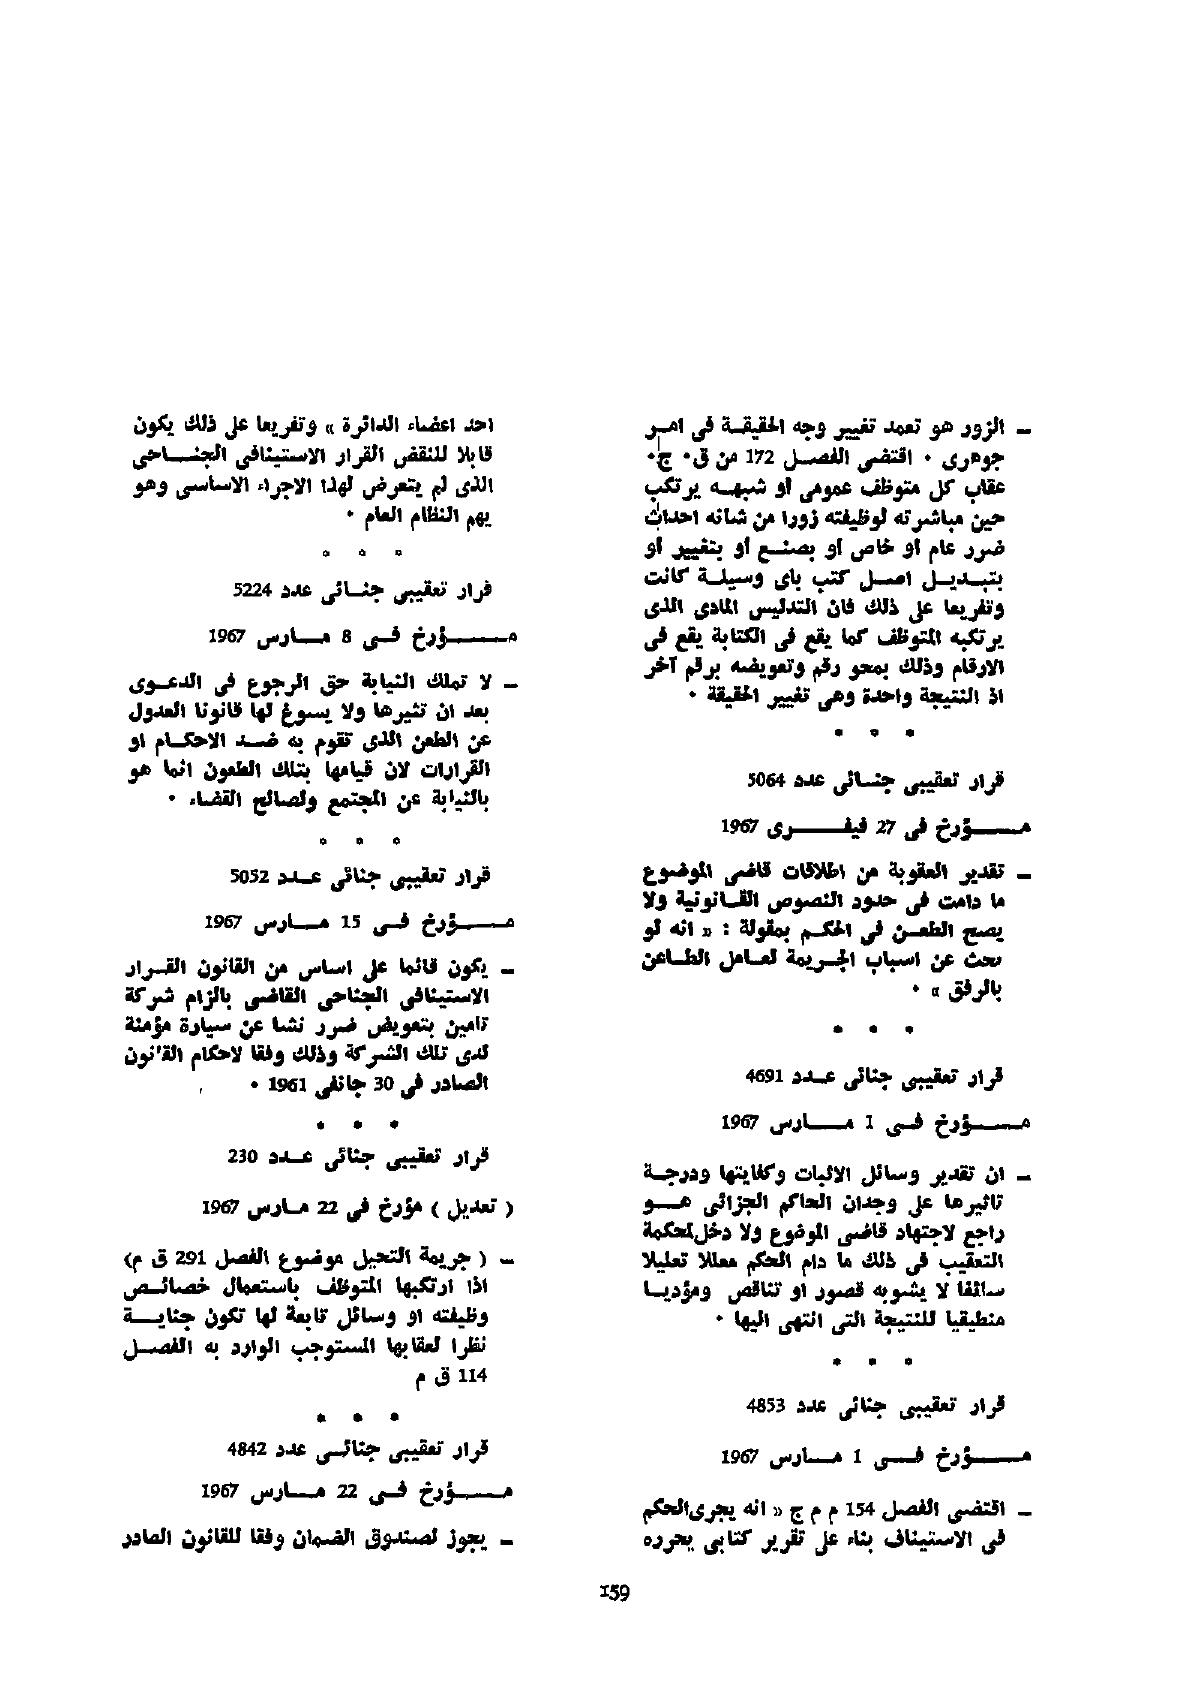 ـ الزور هو تعمد تغيير وجه الحقيقـة فى امـر
جوهرى ٠ اقتضى الفصـل 172 من ق٠ ج٠
عقاب كل متوظف عمومى أو شبهـه يرتكب
حين مباشرته لوظيفته زورا من شانه احداث
ضرر عام أو خاص أو بصنـع أو بتغيير أو
بتبـديـل اصـل كتب باى وسيلـة كانت
وتفريعا على ذلك فان التدليس المادى الذى
يرتكبه المتوظف كما يقع فى الكتابة يقع فى
الارقام وذلك بمحو رقم وتعويضه برقم آخر
اذ النتيجة واحدة وهى تغيير الحقيقة ٠
* * *
قرار تعقيبى جنـائى عدد 5064
مـــؤرخ فى 27 فيفــــرى 1967
ـ تقدير العقوبة من اطلاقات قاضى الموضوع
ما دامت فى حدود النصوص القـانونية ولا
يصح الطعـن فى الحكـم بمقولة : « انه لو
بحث عن اسباب الجـريمة لعـامل الطـاعن
بالرفق » ٠
* * *
قرار تعقيبى جنائى عـدد 4691
مــــؤرخ فـى 1 مــارس 1967
ـ ان تقدير وسائل الاثبات وكفايتها ودرجـة
تاثيرها على وجدان الحاكم الجزائى هـــو
راجع لاجتهاد قاضى الموضوع ولا دخل لمحكمة
التعقيب فى ذلك ما دام الحكم معللا تعليلا
سـائغا لا يشوبه قصور او تناقص ومؤديـا
منطيقيا للنتيجة التى انتهى اليها ٠
* * *
قرار تعقيبى جنائى عدد 4853
مــــؤرخ فــى 1 مـارس 1967
ـ اقتضى الفصل 154 م م ج « انه يجرى الحكم
فى الاستيناف بناء على تقرير كتابى يحرره
احد اعضاء الدائرة » وتفريعا على ذلك يكون
قابلا للنقض القرار الاستينافى الجنــاحى
الذى لم يتعرض لهذا الاجراء الاساسى وهو
يهم النظام العام ٠
* * *
قرار تعقيبى جنـائى عدد 5224
مــــؤرخ فـى 8 مـارس 1967
ـ لا تملك النيابة حق الرجوع فى الدعـوى
بعد ان تثيرها ولا يسوغ لها قانونا العدول
عن الطعن الذى تقوم به ضـد الاحكـام او
القرارات لان قيامها بتلك الطعون انما هو
بالنيابة عن المجتمع ولصالح القضاء ٠
* * *
قرار تعقيبى جنائى عـدد 5052
مـــؤرخ فـى 15 مـارس 1967
ـ يكون قائما على اساس من القانون القـرار
الاستينافى الجناحى القاضى بالزام شركة
تامين بتعويض ضرر نشا عن سيارة مؤمنة
لدى تلك الشركة وذلك وفقا لاحكام القانون
الصادر فى 30 جانفى 1961 ٠
* * *
قرار تعقيبى جنائى عـدد 230
( تعديل ) مؤرخ فى 22 مـارس 1967
ـ ( جريمة التحيل موضوع الفصل 291 ق م)
اذا ارتكبها المتوظف باستعمال خصائـص
وظيفته او وسائل تابعة لها تكون جنايـــة
نظرا لعقابها المستوجب الوارد به الفصـل
114 ق م
* * *
قرار تعقيبى جنائـى عدد 4842
مـــؤرخ فـى 22 مــارس 1967
ـ يجوز لصندوق الضمان وفقا للقانون الصادر
159